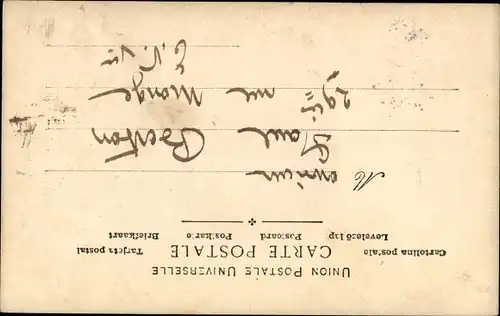 UNION POSTALE UNIVERSELLE
CARTE POSTALE
Cartolina postale Tarjeta postal
Levelező lap Postcard Postkarte Briefkaart
Monsieur
Paul Berthon
rue Monge
E. V.